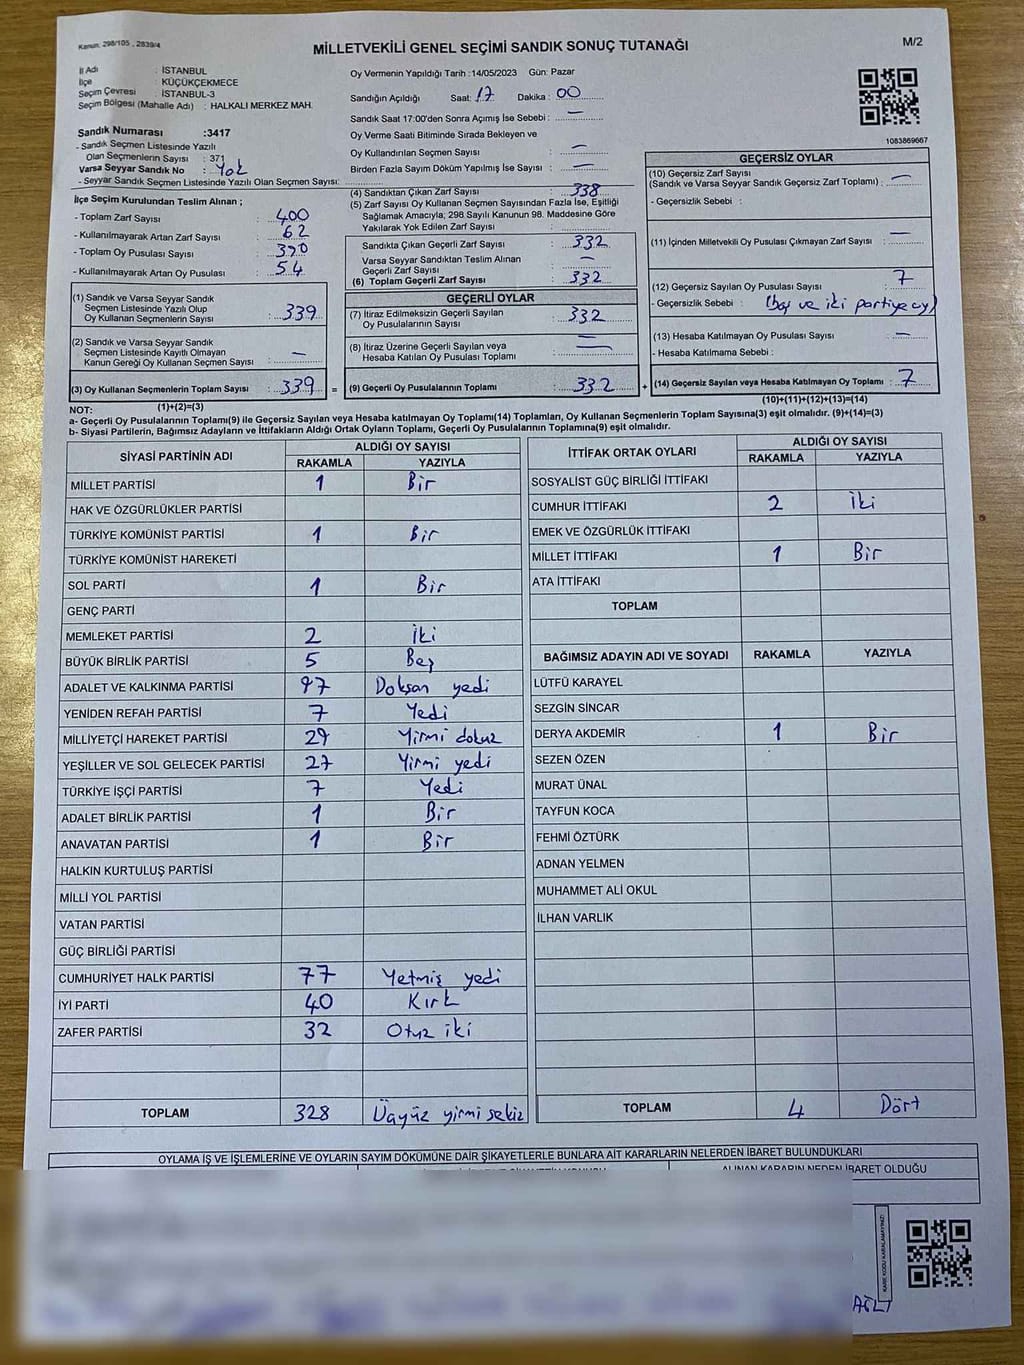 Kanun: 298/105 , 2839/4
MİLLETVEKİLİ GENEL SEÇİMİ SANDIK SONUÇ TUTANAĞI
M/2
İl Adı : İSTANBUL
İlçe : KÜÇÜKÇEKMECE
Seçim Çevresi : İSTANBUL-3
Seçim Bölgesi (Mahalle Adı) : HALKALI MERKEZ MAH.
Sandık Numarası :3417
- Sandık Seçmen Listesinde Yazılı
Olan Seçmenlerin Sayısı : 371
Varsa Seyyar Sandık No : Yok
- Seyyar Sandık Seçmen Listesinde Yazılı Olan Seçmen Sayısı:
İlçe Seçim Kurulundan Teslim Alınan ;
- Toplam Zarf Sayısı : 400
- Kullanılmayarak Artan Zarf Sayısı : 62
- Toplam Oy Pusulası Sayısı : 390
- Kullanılmayarak Artan Oy Pusulası : 54
(1) Sandık ve Varsa Seyyar Sandık
Seçmen Listesinde Yazılı Olup
Oy Kullanan Seçmenlerin Sayısı : 339
(2) Sandık ve Varsa Seyyar Sandık
Seçmen Listesinde Kayıtlı Olmayan
Kanun Gereği Oy Kullanan Seçmen Sayısı : —
(3) Oy Kullanan Seçmenlerin Toplam Sayısı : 339 =
(1)+(2)=(3)
Oy Vermenin Yapıldığı Tarih :14/05/2023 Gün: Pazar
Sandığın Açıldığı Saat: 17 Dakika : 00
Sandık Saat 17:00'den Sonra Açımış İse Sebebi : —
Oy Verme Saati Bitiminde Sırada Bekleyen ve
Oy Kullandırılan Seçmen Sayısı : —
Birden Fazla Sayım Döküm Yapılmış İse Sayısı : —
(4) Sandıktan Çıkan Zarf Sayısı : 338
(5) Zarf Sayısı Oy Kullanan Seçmen Sayısından Fazla İse, Eşitliği
Sağlamak Amacıyla; 298 Sayılı Kanunun 98. Maddesine Göre
Yakılarak Yok Edilen Zarf Sayısı :
Sandıkta Çıkan Geçerli Zarf Sayısı : 332
Varsa Seyyar Sandıktan Teslim Alınan
Geçerli Zarf Sayısı : —
(6) Toplam Geçerli Zarf Sayısı : 332
GEÇERLİ OYLAR
(7) İtiraz Edilmeksizin Geçerli Sayılan
Oy Pusulalarının Sayısı : 332
(8) İtiraz Üzerine Geçerli Sayılan veya
Hesaba Katılan Oy Pusulası Toplamı : —
(9) Geçerli Oy Pusulalarının Toplamı : 332 +
1083869667
GEÇERSİZ OYLAR
(10) Geçersiz Zarf Sayısı
(Sandık ve Varsa Seyyar Sandık Geçersiz Zarf Toplamı) : —
- Geçersizlik Sebebi :
(11) İçinden Milletvekili Oy Pusulası Çıkmayan Zarf Sayısı : —
(12) Geçersiz Sayılan Oy Pusulası Sayısı : 7
- Geçersizlik Sebebi : (boş ve iki partiye oy)
(13) Hesaba Katılmayan Oy Pusulası Sayısı : —
- Hesaba Katılmama Sebebi :
(14) Geçersiz Sayılan veya Hesaba Katılmayan Oy Toplamı : 7
(10)+(11)+(12)+(13)=(14)
NOT:
a- Geçerli Oy Pusulalarının Toplamı(9) ile Geçersiz Sayılan veya Hesaba katılmayan Oy Toplamı(14) Toplamları, Oy Kullanan Seçmenlerin Toplam Sayısına(3) eşit olmalıdır. (9)+(14)=(3)
b- Siyasi Partilerin, Bağımsız Adayların ve İttifakların Aldığı Ortak Oyların Toplamı, Geçerli Oy Pusulalarının Toplamına(9) eşit olmalıdır.
SİYASİ PARTİNİN ADI ALDIĞI OY SAYISI
RAKAMLA YAZIYLA
MİLLET PARTİSİ 1 Bir
HAK VE ÖZGÜRLÜKLER PARTİSİ
TÜRKİYE KOMÜNİST PARTİSİ 1 Bir
TÜRKİYE KOMÜNİST HAREKETİ
SOL PARTİ 1 Bir
GENÇ PARTİ
MEMLEKET PARTİSİ 2 İki
BÜYÜK BİRLİK PARTİSİ 5 Beş
ADALET VE KALKINMA PARTİSİ 97 Doksan yedi
YENİDEN REFAH PARTİSİ 7 Yedi
MİLLİYETÇİ HAREKET PARTİSİ 29 Yirmi dokuz
YEŞİLLER VE SOL GELECEK PARTİSİ 27 Yirmi yedi
TÜRKİYE İŞÇİ PARTİSİ 7 Yedi
ADALET BİRLİK PARTİSİ 1 Bir
ANAVATAN PARTİSİ 1 Bir
HALKIN KURTULUŞ PARTİSİ
MİLLİ YOL PARTİSİ
VATAN PARTİSİ
GÜÇ BİRLİĞİ PARTİSİ
CUMHURİYET HALK PARTİSİ 77 Yetmiş yedi
İYİ PARTİ 40 Kırk
ZAFER PARTİSİ 32 Otuz iki
TOPLAM 328 Üçyüz yirmi sekiz
İTTİFAK ORTAK OYLARI ALDIĞI OY SAYISI
RAKAMLA YAZIYLA
SOSYALİST GÜÇ BİRLİĞİ İTTİFAKI
CUMHUR İTTİFAKI 2 İki
EMEK VE ÖZGÜRLÜK İTTİFAKI
MİLLET İTTİFAKI 1 Bir
ATA İTTİFAKI
TOPLAM
BAĞIMSIZ ADAYIN ADI VE SOYADI RAKAMLA YAZIYLA
LÜTFÜ KARAYEL
SEZGİN SİNCAR
DERYA AKDEMİR 1 Bir
SEZEN ÖZEN
MURAT ÜNAL
TAYFUN KOCA
FEHMİ ÖZTÜRK
ADNAN YELMEN
MUHAMMET ALİ OKUL
İLHAN VARLIK
TOPLAM 4 Dört
OYLAMA İŞ VE İŞLEMLERİNE VE OYLARIN SAYIM DÖKÜMÜNE DAİR ŞİKAYETLERLE BUNLARA AİT KARARLARIN NELERDEN İBARET BULUNDUKLARI
ALINAN KARARIN NEDEN İBARET OLDUĞU
KARE KODU KARALAMAYINIZ!